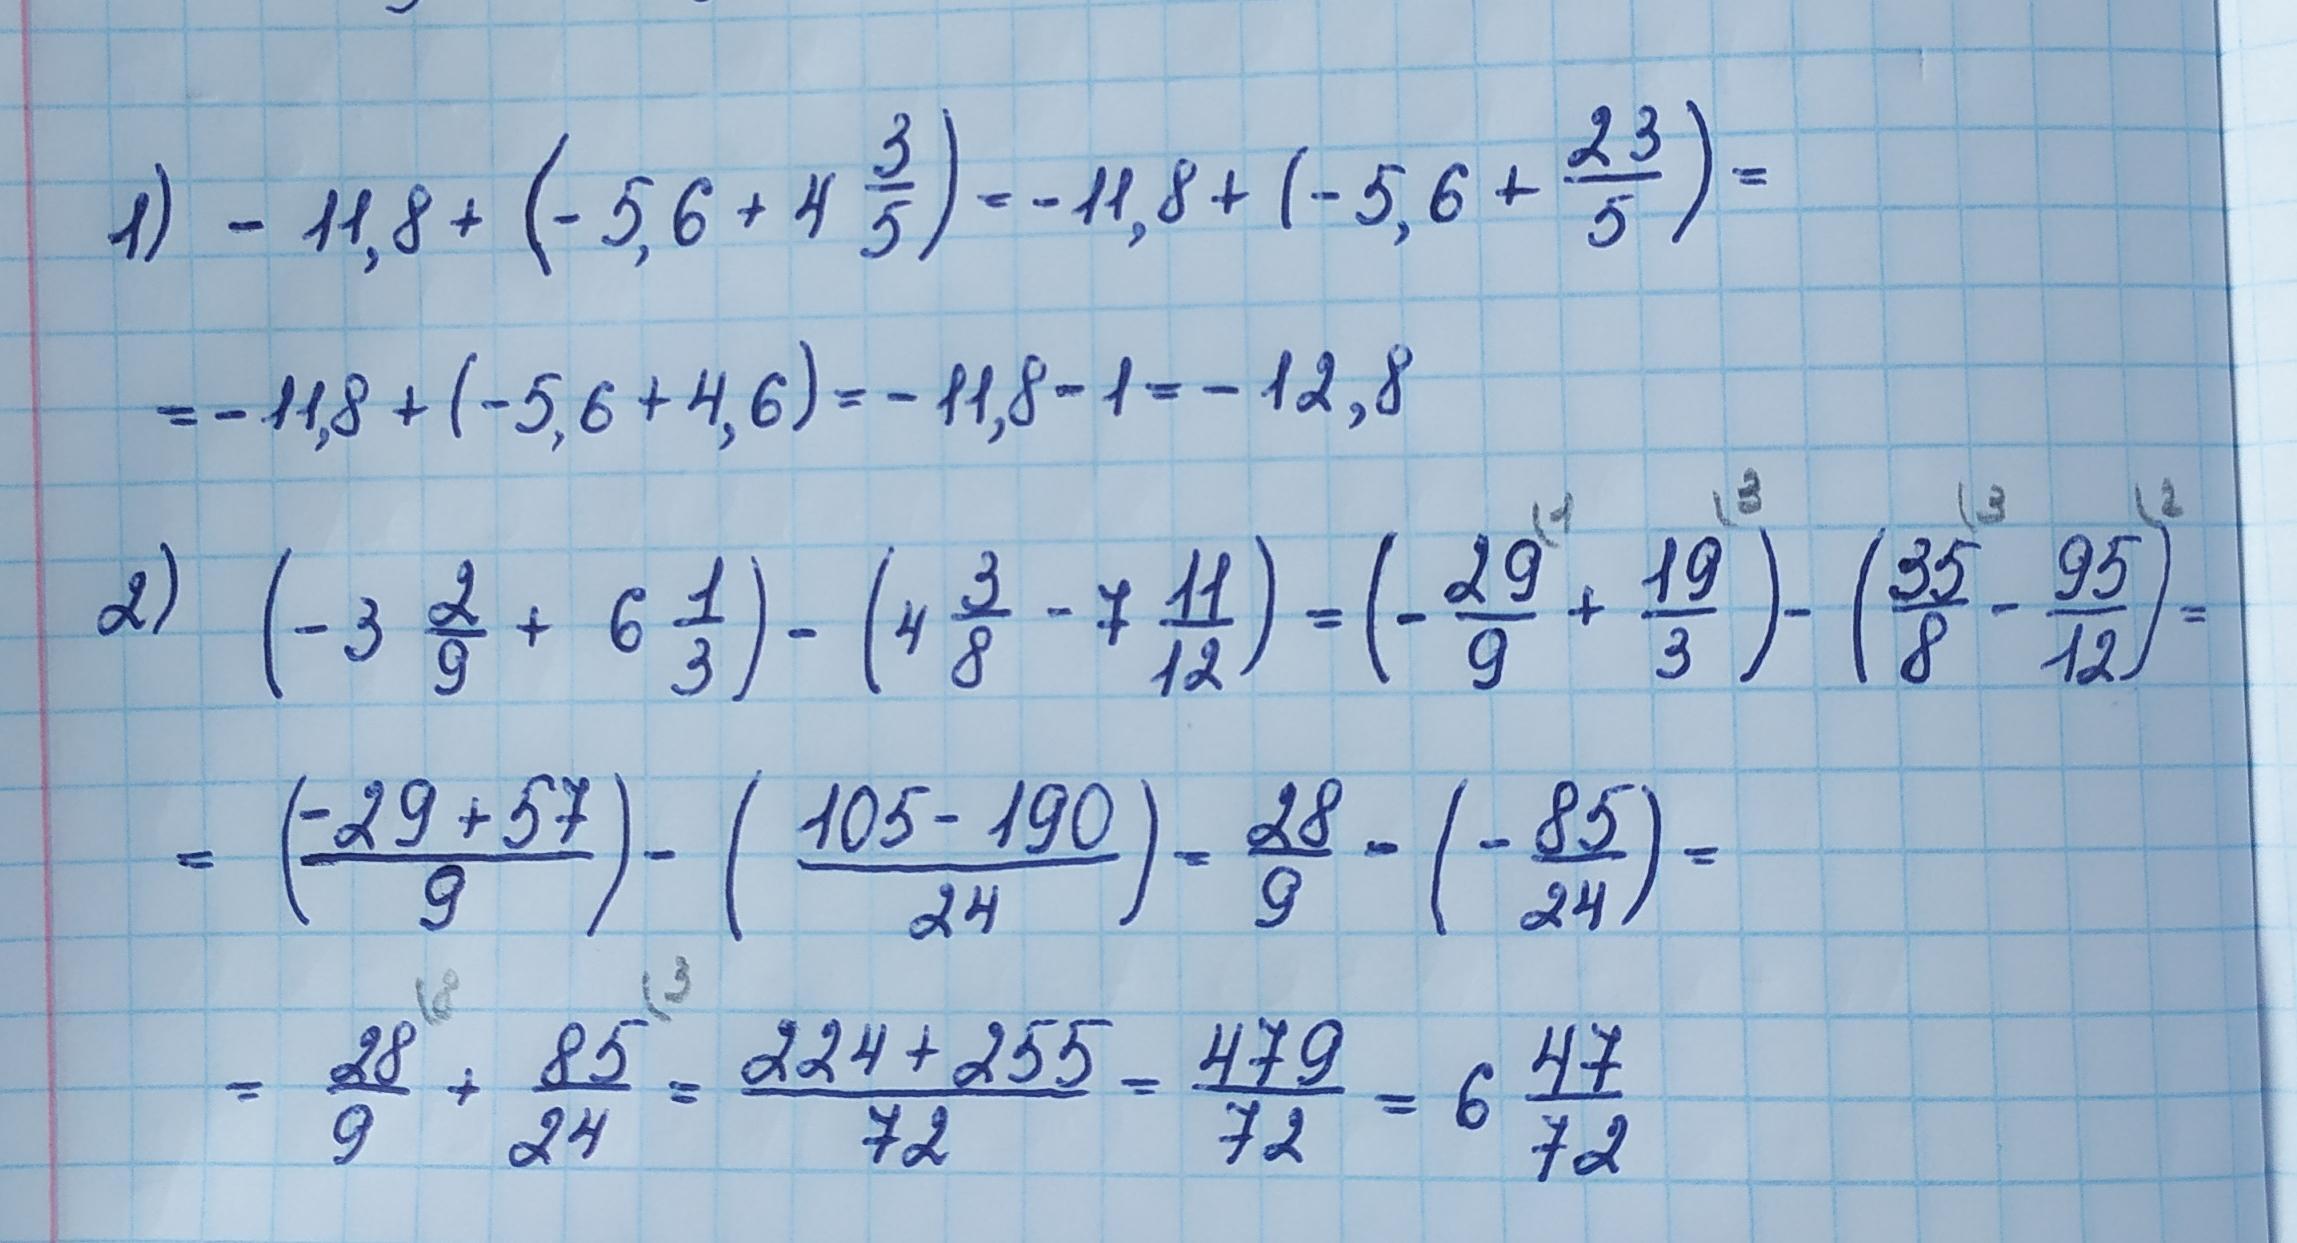 1) - 11,8 + (- 5,6 + 4 3/5) = - 11,8 + (- 5,6 + 23/5) =
= - 11,8 + (- 5,6 + 4,6) = - 11,8 - 1 = - 12,8
2) (- 3 2/9 + 6 1/3) - (4 3/8 - 7 11/12) = (- 29/9 \1 + 19/3 \3) - (35/8 \3 - 95/12 \2) =
= ((- 29 + 57)/9) - ((105 - 190)/24) = 28/9 - (- 85/24) =
= 28/9 \8 + 85/24 \3 = (224 + 255)/72 = 479/72 = 6 47/72